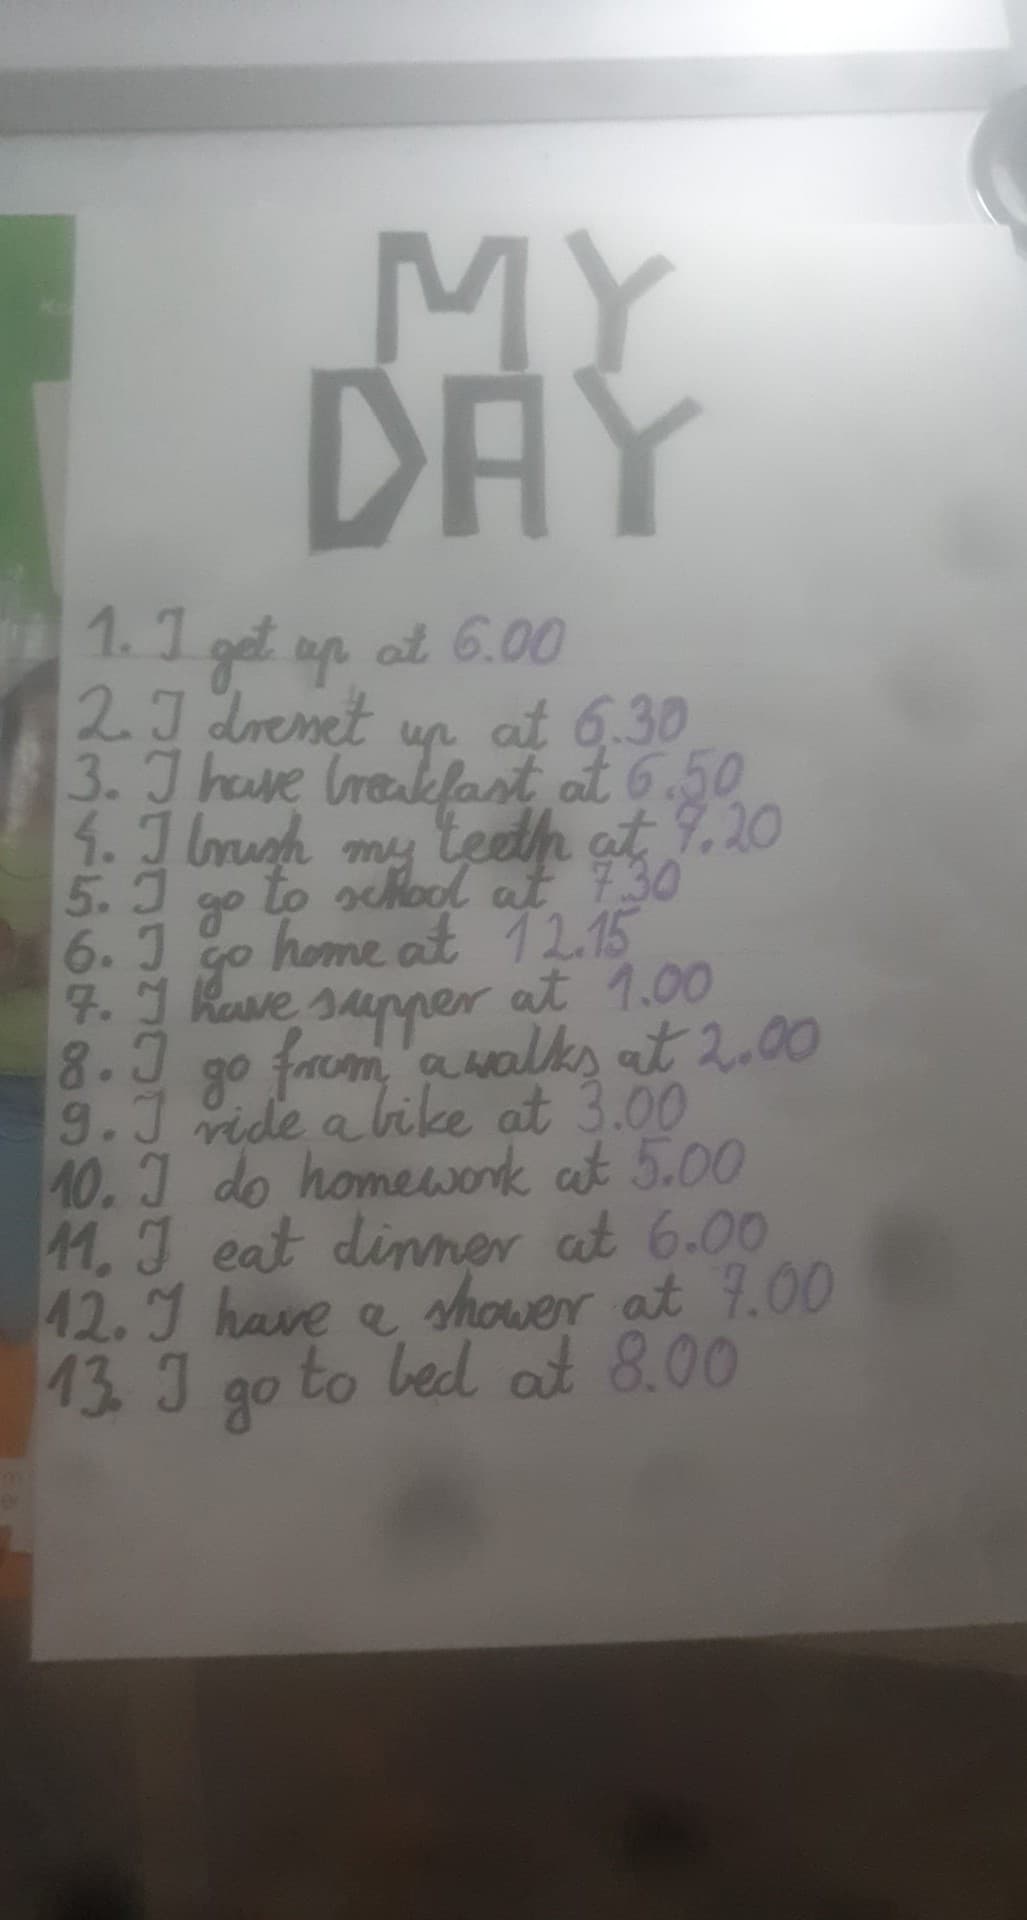 MY
DAY
1. I get up at 6.00
2. I dresset up at 6.30
3. I have breakfast at 6.50
4. I brush my teeth at 7.20
5. I go to school at 7.30
6. I go home at 12.15
7. I have supper at 1.00
8. I go from a walks at 2.00
9. I ride a bike at 3.00
10. I do homework at 5.00
11. I eat dinner at 6.00
12. I have a shower at 7.00
13. I go to bed at 8.00